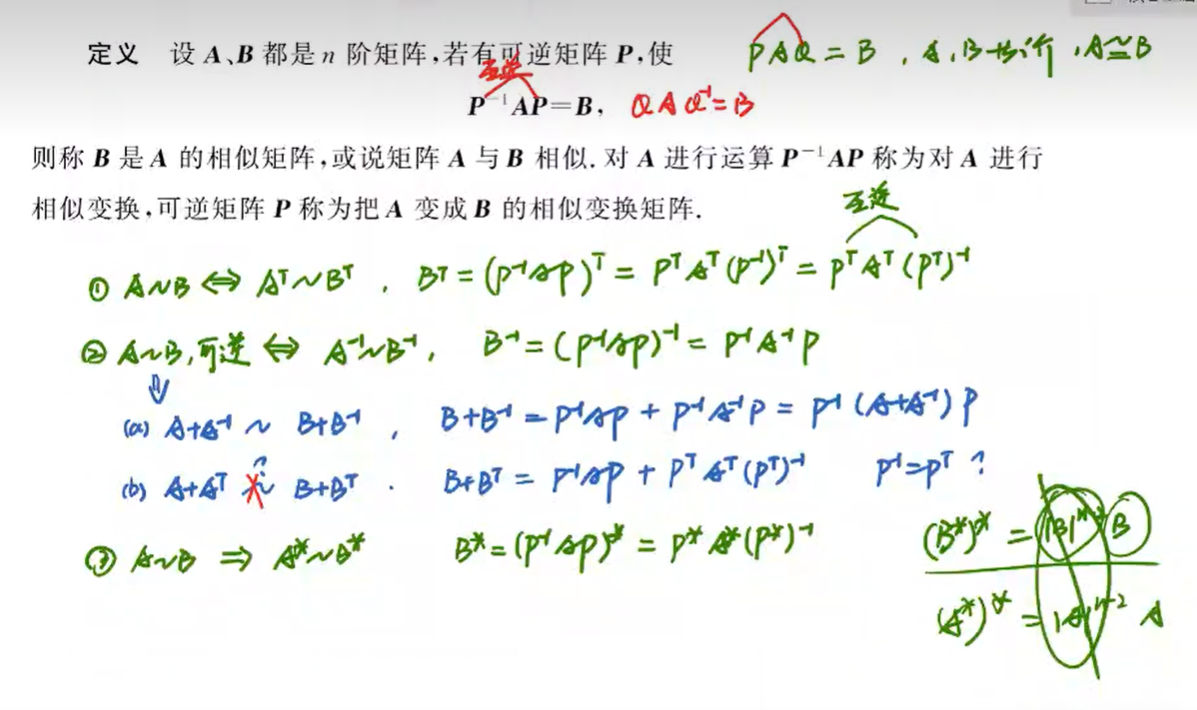 定义 设 A、B 都是 n 阶矩阵,若有可逆矩阵 P,使 PAQ = B , A,B等价 , A≅B
互逆
P⁻¹AP=B, QAQ⁻¹=B
则称 B 是 A 的相似矩阵,或说矩阵 A 与 B 相似. 对 A 进行运算 P⁻¹AP 称为对 A 进行
相似变换,可逆矩阵 P 称为把 A 变成 B 的相似变换矩阵.
互逆
① A~B ⇔ Aᵀ~Bᵀ , Bᵀ = (P⁻¹AP)ᵀ = PᵀAᵀ(P⁻¹)ᵀ = PᵀAᵀ(Pᵀ)⁻¹
② A~B,可逆 ⇔ A⁻¹~B⁻¹ , B⁻¹ = (P⁻¹AP)⁻¹ = P⁻¹A⁻¹P
⇓
(a) A+A⁻¹ ~ B+B⁻¹ , B+B⁻¹ = P⁻¹AP + P⁻¹A⁻¹P = P⁻¹(A+A⁻¹)P
(b) A+Aᵀ ~ B+Bᵀ . B+Bᵀ = P⁻¹AP + PᵀAᵀ(Pᵀ)⁻¹ P⁻¹=Pᵀ ?
③ A~B ⇒ A*~B* B* = (P⁻¹AP)* = P*A*(P*)⁻¹
(B*)* = |B|ⁿ⁻² B
(A*)* = |A|ⁿ⁻² A